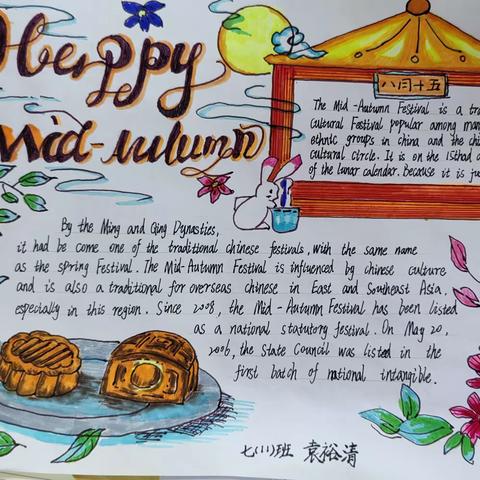 Happy
Mid-Autumn
八月十五
The Mid-Autumn Festival is a tra
cultural Festival popular among man
ethnic groups in china and the chi
cultural circle. It is on the 15thad o
of the lunar calendar. Because it is jus
By the Ming and Qing Dynasties,
it had be come one of the traditional chinese festivals, with the same name
as the spring Festival. The Mid-Autumn Festival is influenced by chinese culture
and is also a traditional for overseas chinese in East and Southeast Asia.
especially in this region. Since 2008, the Mid-Autumn Festival has been listed
as a national statutory festival. On May 20,
2006, the State Council was listed in the
first batch of national intangible.
七(11)班 袁裕清